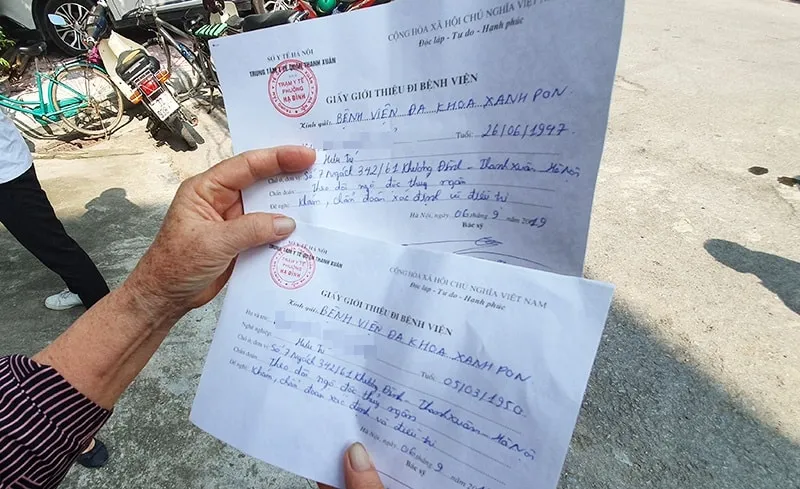 SỞ Y TẾ HÀ NỘI
TRUNG TÂM Y TẾ QUẬN THANH XUÂN
TRẠM Y TẾ
PHƯỜNG
HẠ ĐÌNH
CỘNG HÒA XÃ HỘI CHỦ NGHĨA VIỆT NAM
Độc lập - Tự do - Hạnh phúc
GIẤY GIỚI THIỆU ĐI BỆNH VIỆN
Kính gửi: BỆNH VIỆN ĐA KHOA XANH PON
Tuổi: 26/06/1947
Hưu Trí
Chỗ ở, đơn vị: Số 7 Ngách 342/61 Khương Đình - Thanh Xuân - Hà Nội
Chẩn đoán: Theo dõi ngộ độc thuỷ ngân
Đề nghị: Khám, chẩn đoán xác định và điều trị
Hà Nội, ngày 06 tháng 9 năm 2019
Bác sỹ
SỞ Y TẾ HÀ NỘI
TRUNG TÂM Y TẾ QUẬN THANH XUÂN
TRẠM Y TẾ
PHƯỜNG
HẠ ĐÌNH
CỘNG HÒA XÃ HỘI CHỦ NGHĨA VIỆT NAM
Độc lập - Tự do - Hạnh phúc
GIẤY GIỚI THIỆU ĐI BỆNH VIỆN
Kính gửi: BỆNH VIỆN ĐA KHOA XANH PON
Họ và tên:
Tuổi: 05/03/1950
Nghề nghiệp: Hưu Trí
Chỗ ở, đơn vị: Số 7 Ngách 342/61 Khương Đình - Thanh Xuân - Hà Nội
Chẩn đoán: Theo dõi ngộ độc thuỷ ngân
Đề nghị: Khám, chẩn đoán xác định và điều trị
Hà Nội, ngày 06 tháng 9 năm
Bác sỹ